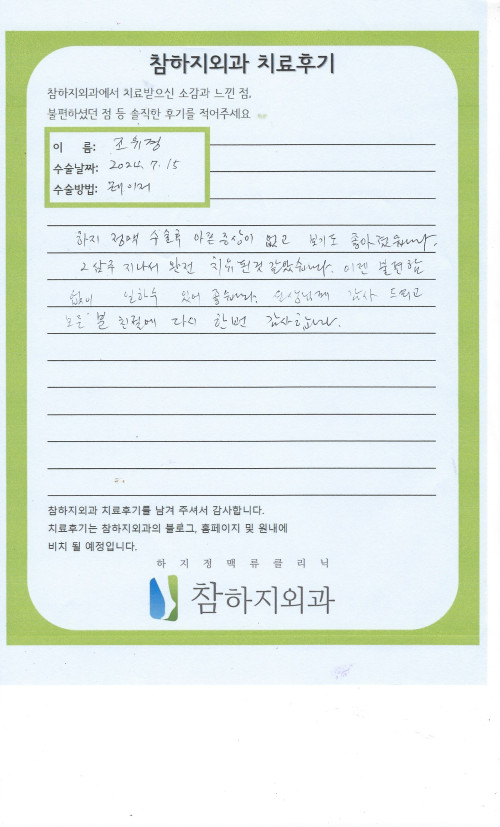 참하지외과 치료후기
참하지외과에서 치료받으신 소감과 느낀 점,
불편하셨던 점 등 솔직한 후기를 적어주세요
이 름: 조
수술날짜: 2024. 7. 15
수술방법: 레이저
하지 정맥 수술후 아픈 증상이 없고 보기도 좋아졌습니다.
2삼주 지나서 완전 치유된것 같았습니다. 이젠 불편함
없이 일하수 있어 좋습니다. 선생님께 감사 드리고
모든 분 친절에 다시 한번 감사합니다.
참하지외과 치료후기를 남겨 주셔서 감사합니다.
치료후기는 참하지외과의 블로그, 홈페이지 및 원내에
비치 될 예정입니다.
하지정맥류클리닉
참하지외과